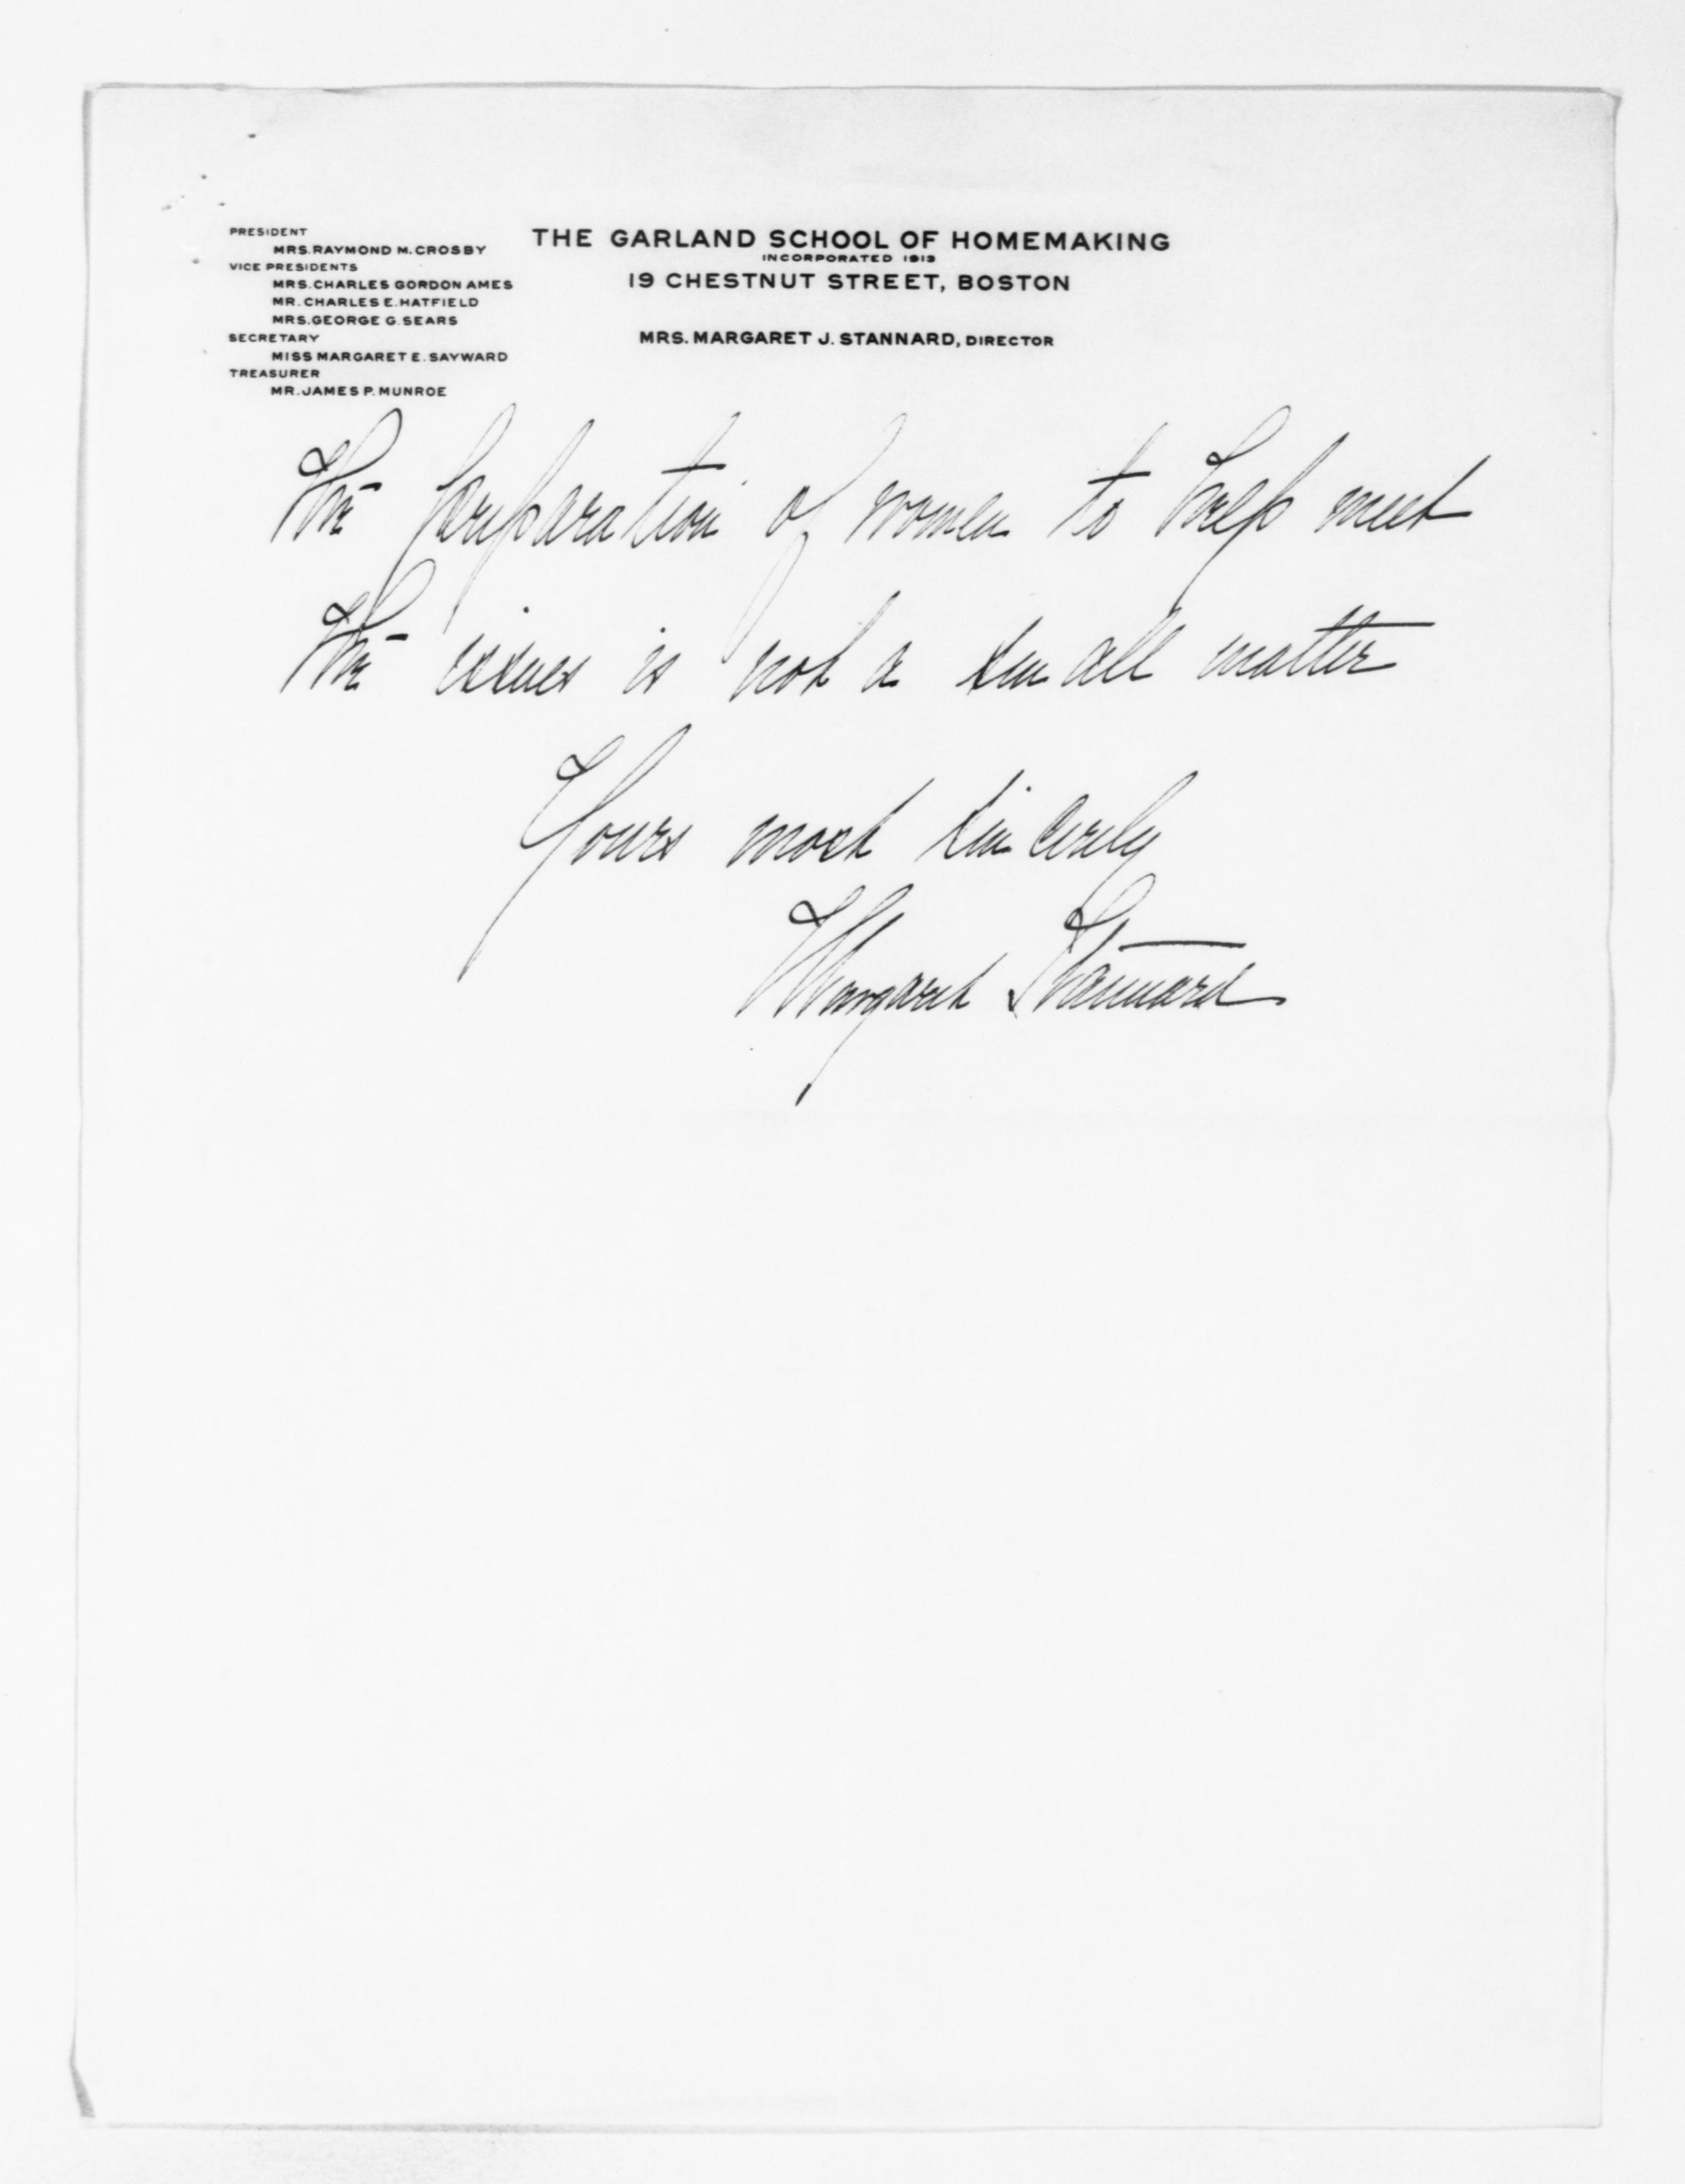 PRESIDENT
MRS. RAYMOND M. CROSBY
VICE PRESIDENTS
MRS. CHARLES GORDON AMES
MR. CHARLES E. HATFIELD
MRS. GEORGE G. SEARS
SECRETARY
MISS MARGARET E. SAYWARD
TREASURER
MR. JAMES P. MUNROE
THE GARLAND SCHOOL OF HOMEMAKING
INCORPORATED 1913
19 CHESTNUT STREET, BOSTON
MRS. MARGARET J. STANNARD, DIRECTOR
The preparation of women to help meet
the issues is not a small matter
Yours most sincerely
Margaret Stannard